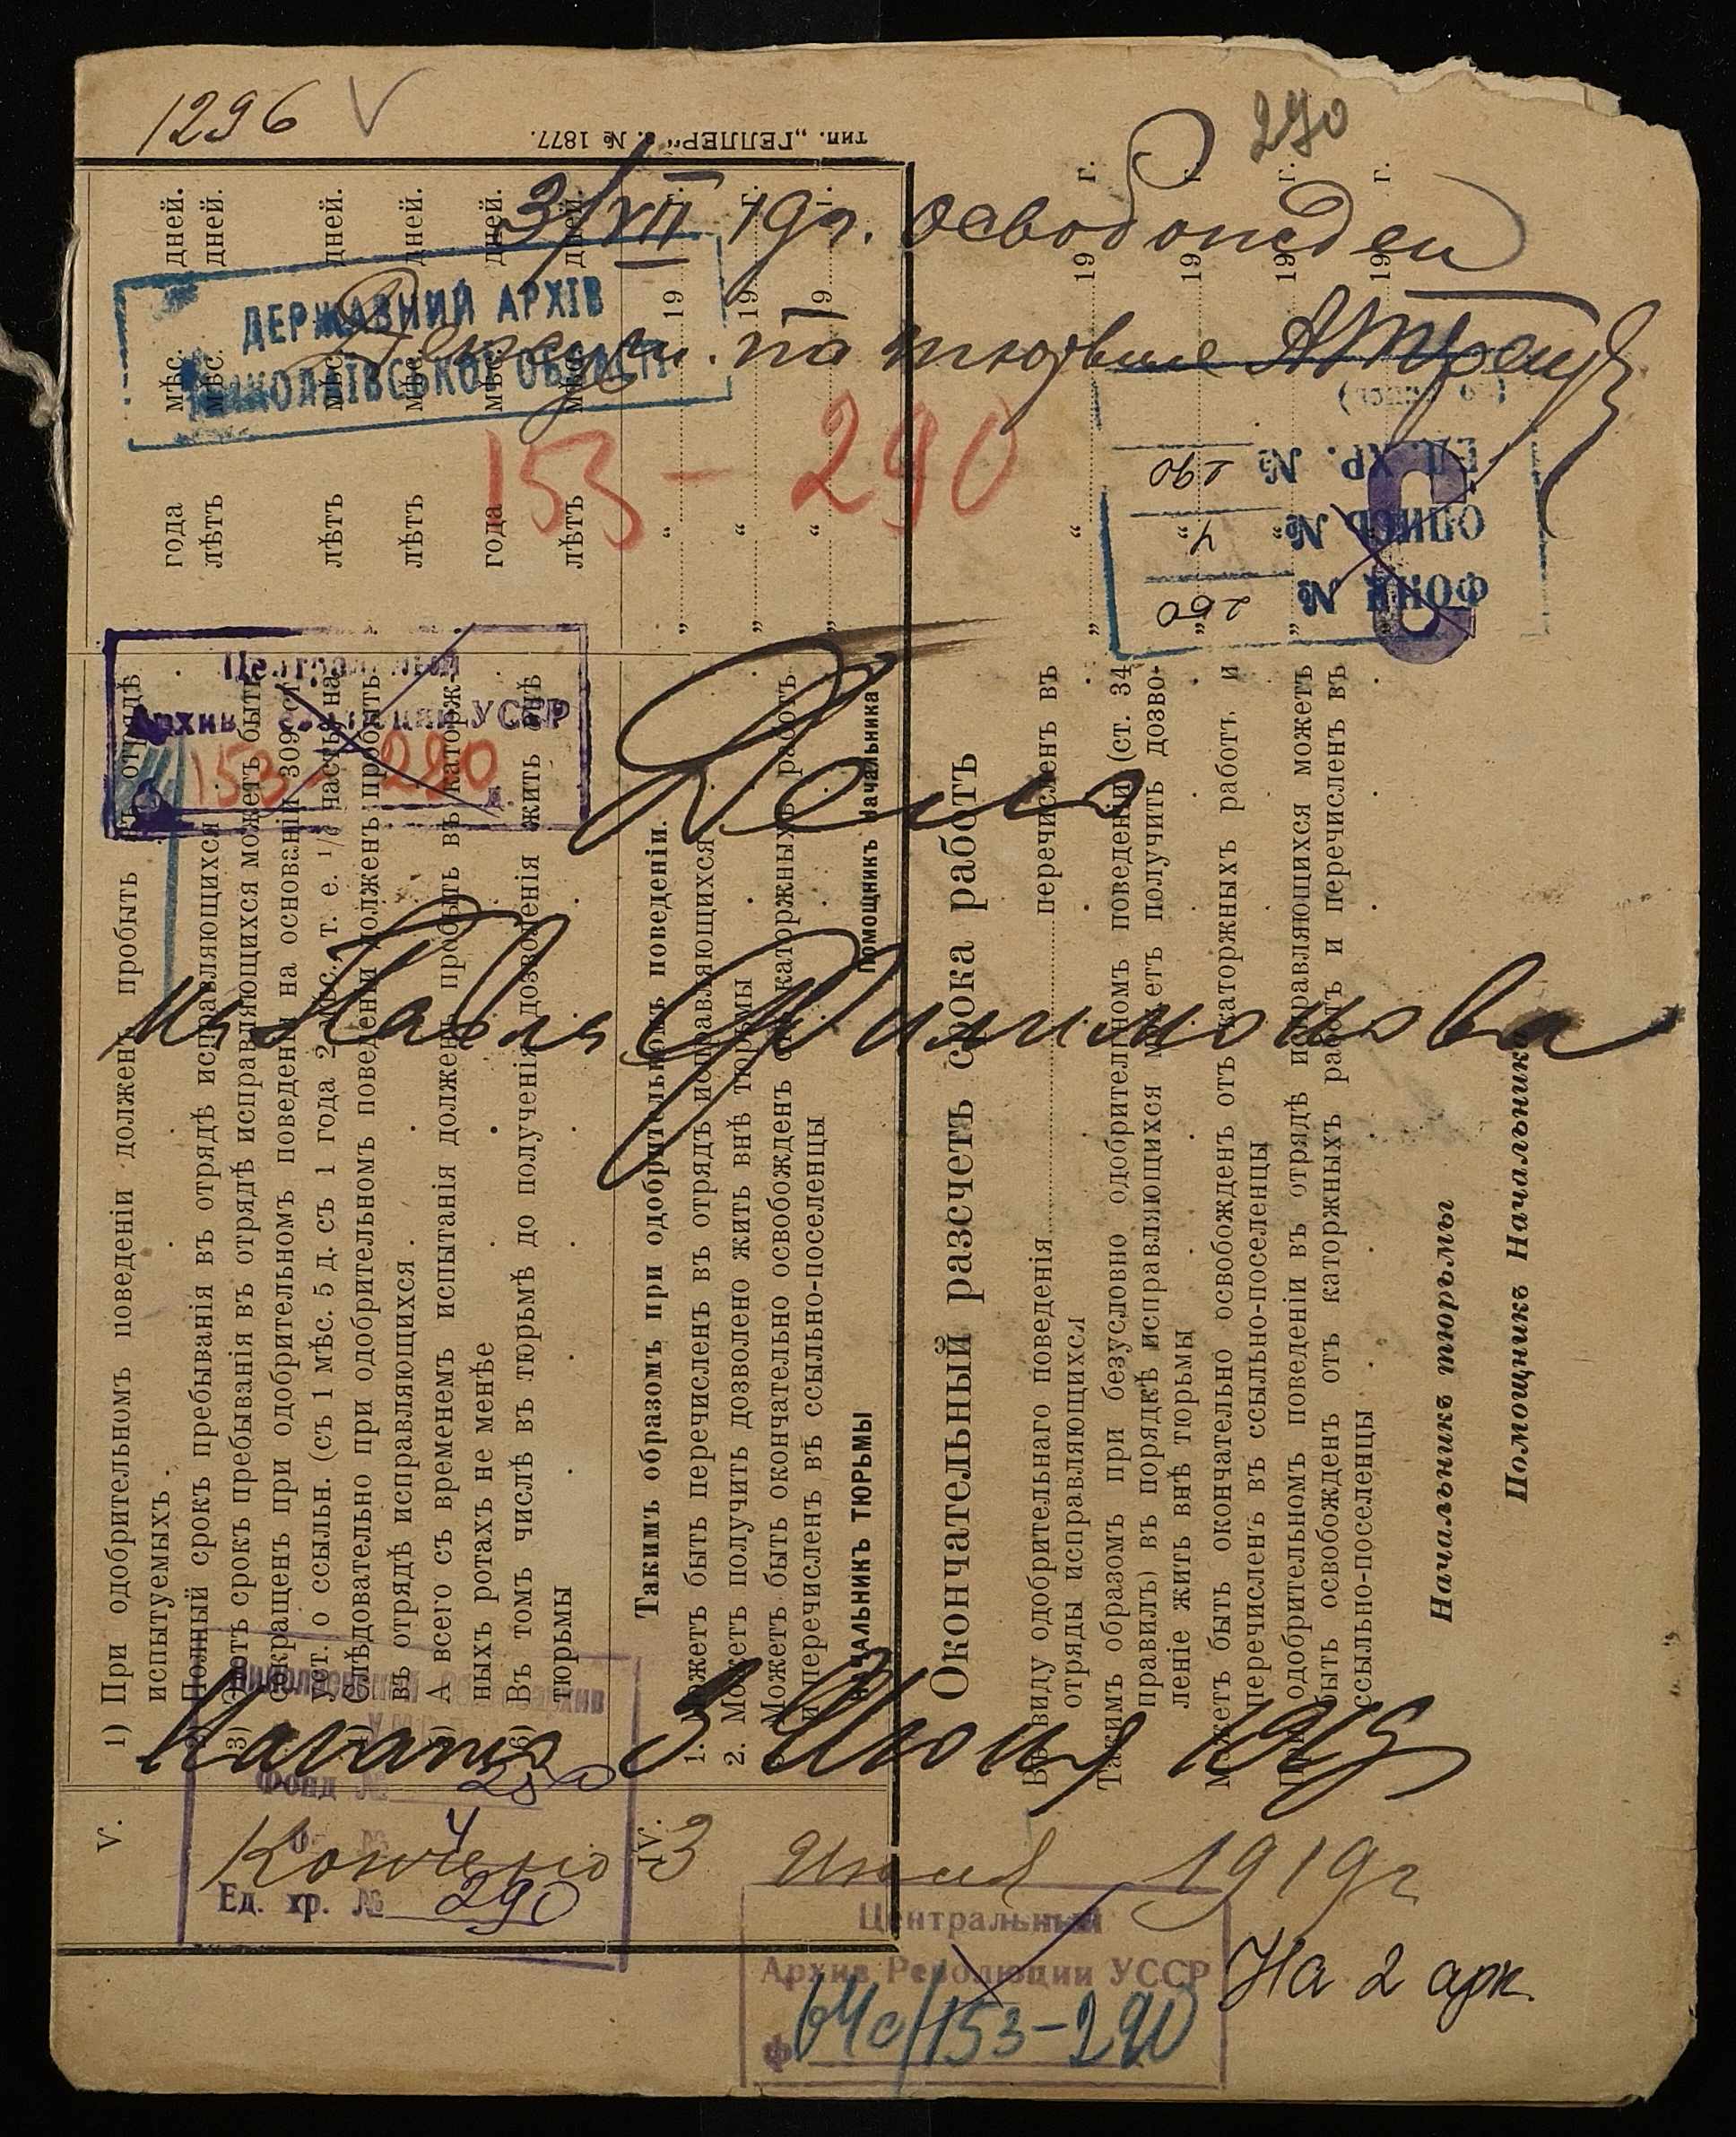 1296
290
3/VII 19г. освобожден
Дежурн. по тюрьме
ДЕРЖАВНИЙ АРХІВ
МИКОЛАЇВСЬКОЇ ОБЛАСТІ
153-290
ФОНД № 250
ОПИСЬ № 4
ЕД. ХР. № 290
Центральный
Архив Революции УССР
153-290
Дело
На Павла Филимонова
Начато 3 Июня 1919
Николаевский
Фонд № 250
Оп. № 4
Ед. хр. № 290
Кончено 3 Июля 1919г
Центральный
Архив Революции УССР
Ф. 64с/153-290
На 2 арк.
тип. „ГЕЛЛЕРЪ“ з. № 1877.
V.
1) При одобрительномъ поведеніи долженъ пробыть въ отрядѣ
испытуемыхъ . года мѣс. дней.
2) Полный срокъ пребыванія въ отрядѣ исправляющихся . лѣтъ мѣс. дней.
3) Этотъ срокъ пребыванія въ отрядѣ исправляющихся можетъ быть
сокращенъ при одобрительномъ поведеніи на основаніи 309 ст.
уст. о ссыльн. (съ 1 мѣс. 5 д. съ 1 года 2 мѣс., т. е. 1/6 часть) на лѣтъ мѣс. дней.
4) Слѣдовательно при одобрительномъ поведеніи долженъ пробыть
въ отрядѣ исправляющихся . лѣтъ мѣс. дней.
5) А всего съ временемъ испытанія долженъ пробыть въ каторж-
ныхъ ротахъ не менѣе года мѣс. дней.
6) Въ томъ числѣ въ тюрьмѣ до полученія дозволенія жить внѣ
тюрьмы лѣтъ мѣс. дней.
IV.
Такимъ образомъ при одобрительномъ поведеніи.
1. Можетъ быть перечисленъ въ отрядъ исправляющихся . „ “ 19 г.
2. Можетъ получить дозволено жить внѣ тюрьмы „ “ 19 г.
3. Можетъ быть окончательно освобожденъ отъ каторжныхъ работъ
и перечисленъ въ ссыльно-поселенцы „ “ 19 г.
НАЧАЛЬНИКЪ ТЮРЬМЫ Помощникъ Начальника
Окончательный разсчетъ срока работъ
Въ виду одобрительнаго поведенія перечисленъ въ
отряды исправляющихся „ “ 19 г.
Такимъ образомъ при безусловно одобрительномъ поведеніи (ст. 34
правилъ) въ порядкѣ исправляющихся можетъ получить дозво-
леніе жить внѣ тюрьмы „ “ 19 г.
Можетъ быть окончательно освобожденъ отъ каторжныхъ работъ и
перечисленъ въ ссыльно-поселенцы „ “ 19 г.
При одобрительномъ поведеніи въ отрядѣ исправляющихся можетъ
быть освобожденъ отъ каторжныхъ работъ и перечисленъ въ
ссыльно-поселенцы 19 г.
Начальникъ тюрьмы
Помощникъ Начальника